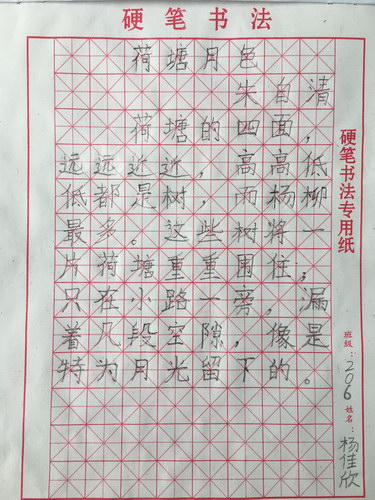 硬笔书法
荷塘月色
朱自清
荷塘的四面，
远远近近，高高低
低都是树，而杨柳
最多。这些树将一
片荷塘重重围住；
只在小路一旁，漏
着几段空隙，像是
特为月光留下的。
硬笔书法专用纸
班级：206 姓名：杨佳欣